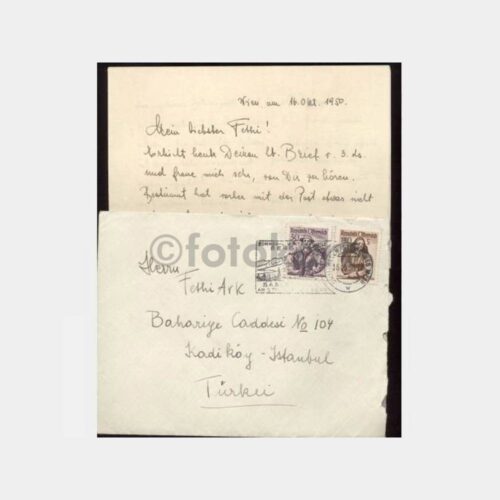 Wien, am 16. Okt. 1950.
Mein liebster Fethi!
Erhielt heute Deinen lb. Brief v. 3. ds.
und freue mich sehr, von Dir zu hören.
Bestimmt hat vorher mit der Post etwas nicht
©foto
Republik Österreich
Republik Österreich
Herrn
Fethi Ark
Bahariye Caddesi No 104
Kadiköy - Istanbul
Türkei